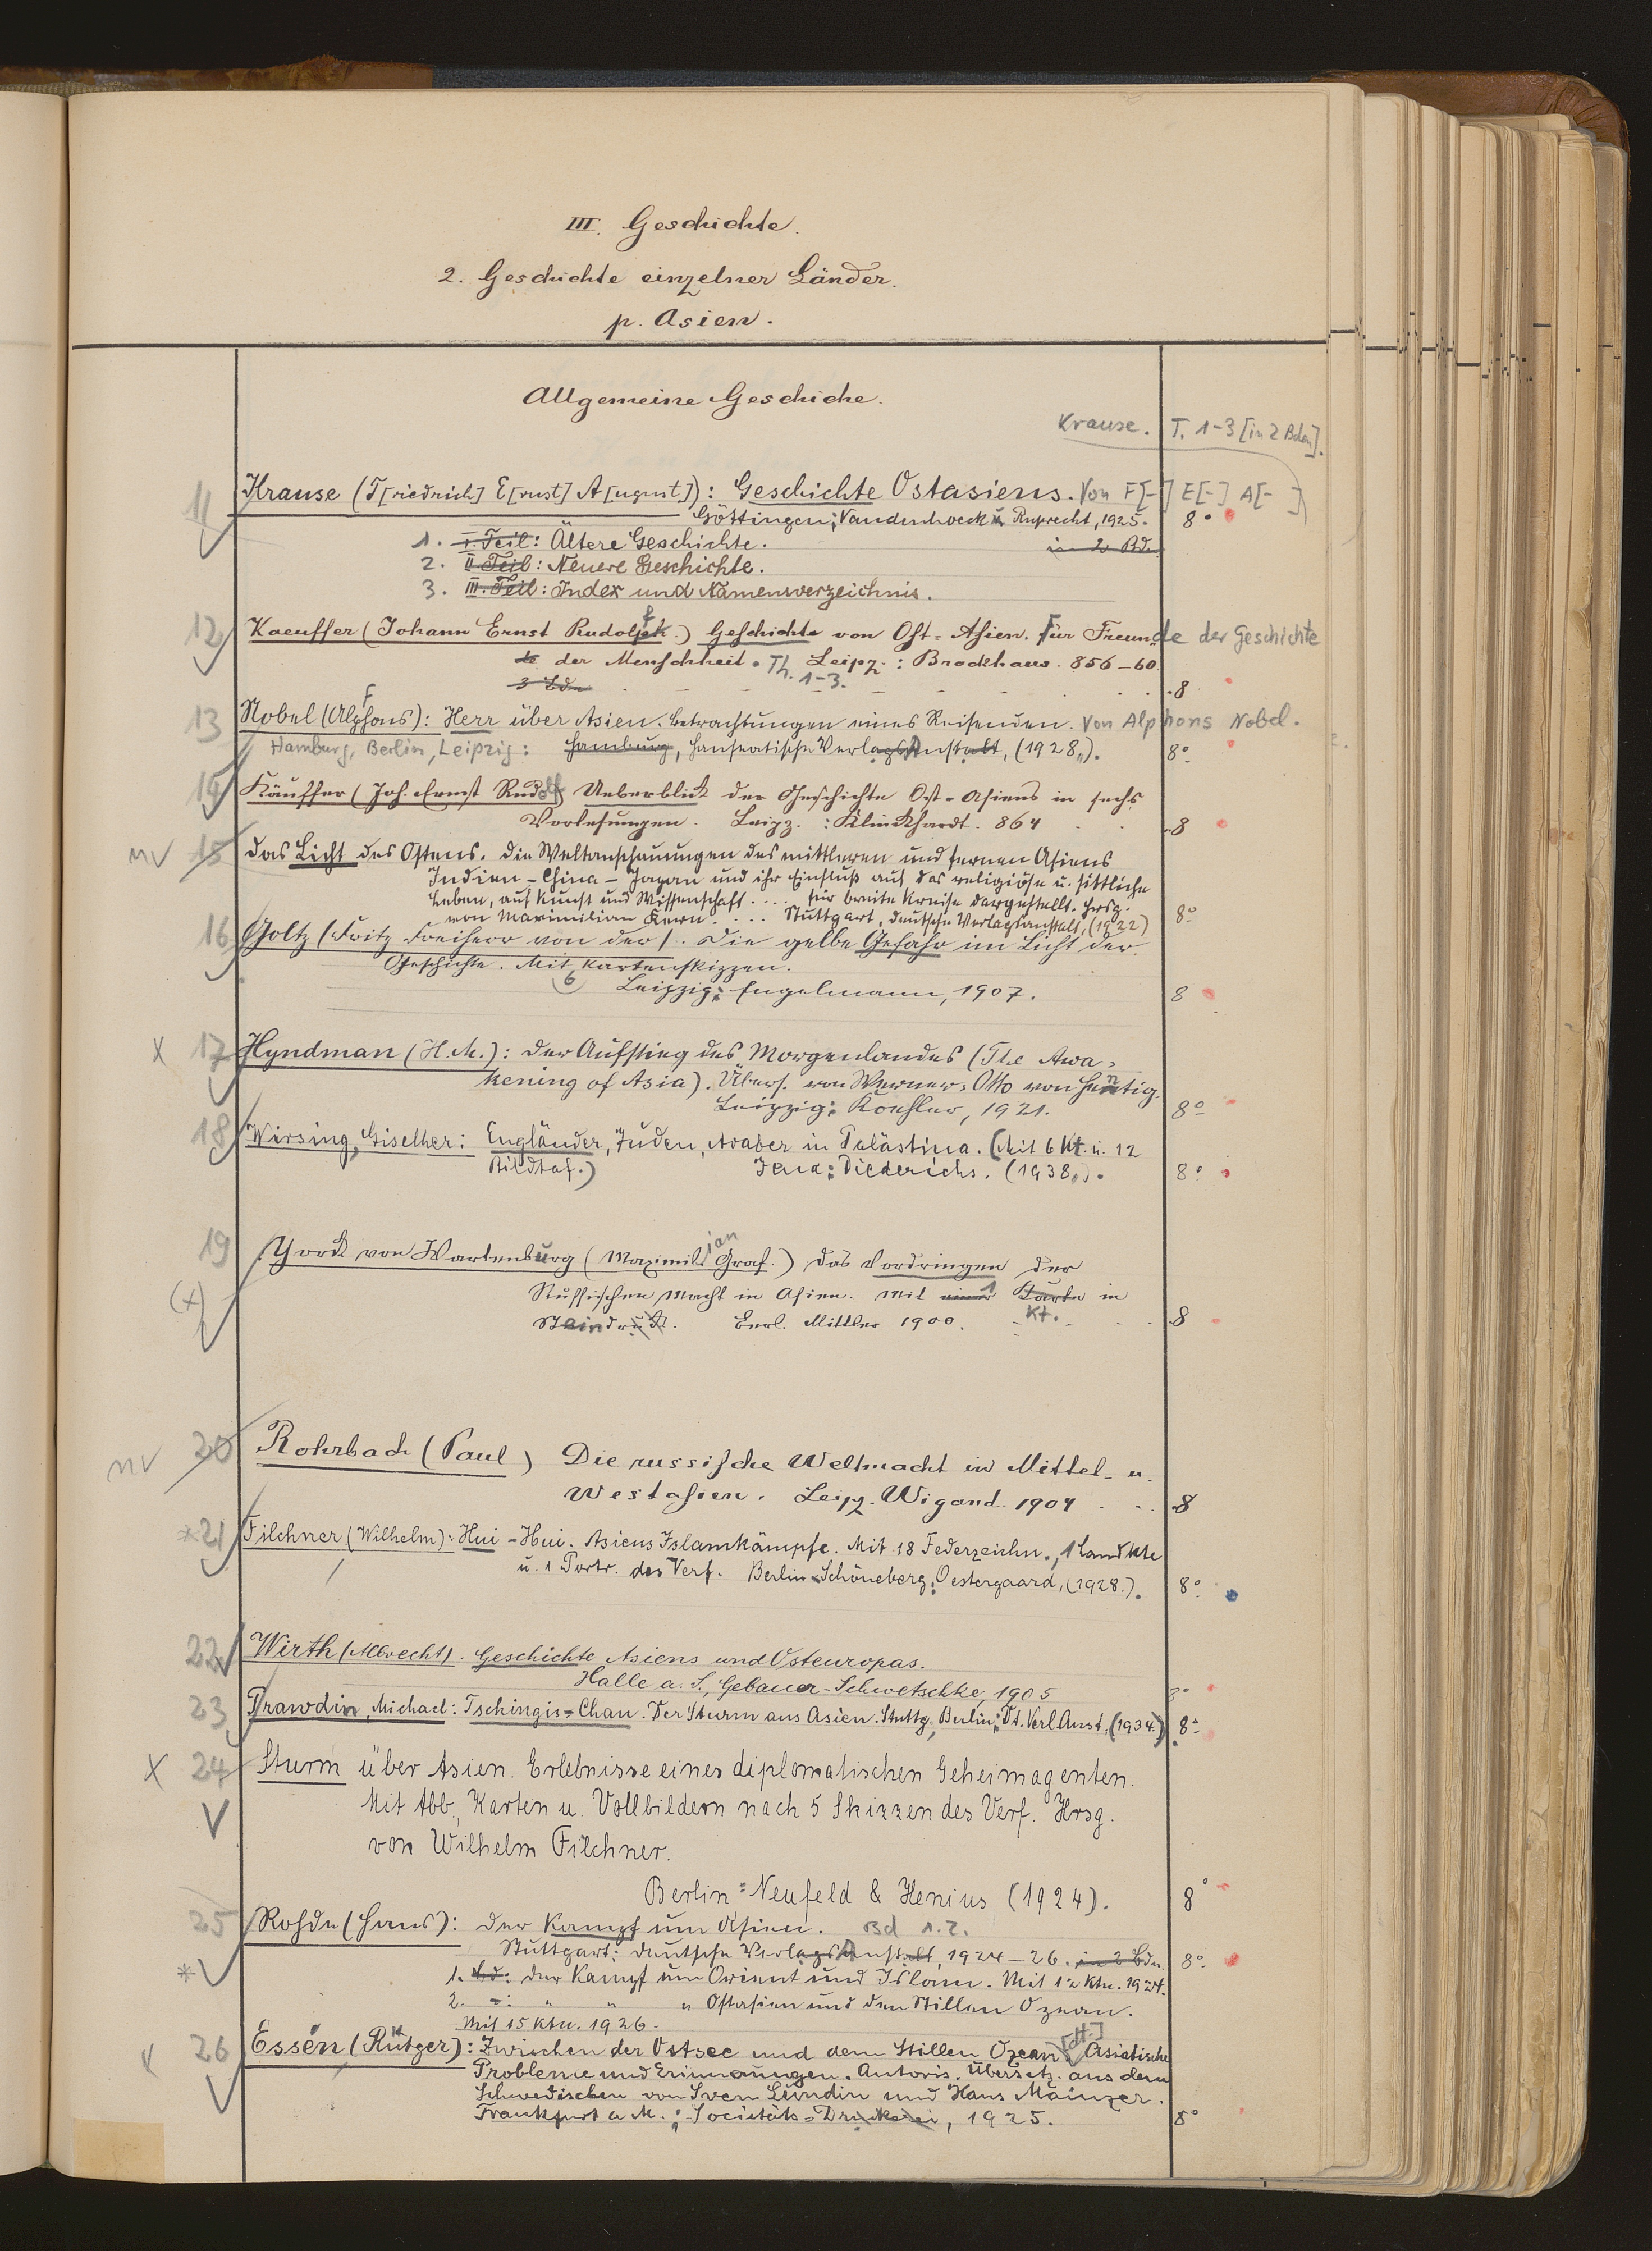 III. Geschichte.
2. Geschichte einzelner Länder.
p. Asien.
Allgemeine Geschiche.
Krause. T. 1-3 [in 2 Bden].
11 Krause (F[riedrich] E[rnst] A[ugust]): Geschichte Ostasiens. Von F[-] E[-] A[- ]
Göttingen: Vandenhoeck u. Ruprecht, 1925. 8°
1. I. Teil: Ältere Geschichte. in 2 Bd.
2. II Teil: Neuere Geschichte.
3. III. Teil: Index und Namensverzeichnis.
12 Kaeuffer (Johann Ernst Rudolf.) Geschichte von Ost-Asien. Für Freunde der Geschichte
der Menschheit. Th. 1-3. Leipz.: Brockhaus. 856-60.
3 Bde 8
13 Nobel (Alphons): Herr über Asien. Betrachtungen eines Reisenden. Von Alphons Nobel.
Hamburg, Berlin, Leipzig: Hamburg, Hanseatische Verlagsanstalt, (1928). 8°
14 Käuffer (Joh. Ernst Rudolf) Ueberblick der Geschichte Ost-Asiens in sechs
Vorlesungen. Leipz.: Klinkhardt. 864 8
nv 15 Das Licht des Ostens. Die Weltanschauungen des mittleren und fernen Asiens
Indien - China - Japan und ihr Einfluß auf das religiöse u. sittliche
Leben, auf Kunst und Wissenschaft .... für breite Kreise dargestellt. Hrsg.
von Maximilian Kern .... Stuttgart, Deutsche Verlagsanstalt, (1922) 8°
16 Goltz (Fritz Freiherr von der). Die gelbe Gefahr im Licht der
Geschichte. Mit 6 Kartenskizzen.
Leipzig: Engelmann, 1907. 8
x 17 Hyndman (H.M.): Der Aufstieg des Morgenlandes (The Awa-
kening of Asia). Übers. von Werner-Otto von Hentig.
Leipzig: Koehler, 1921. 8°
18 Wirsing, Giselher: Engländer, Juden, Araber in Palästina. (Mit 6 Kt. u. 12
Bildtaf.) Jena: Diederichs. (1938). 8°
19 Yorck von Wartenburg (Maximilian Graf.) Das Vordringen der
(x) Russischen Macht in Asien. Mit einer 1 Karte Kt. in
Steindruck. Berl. Mittler 1900. 8
nv 20 Rohrbach (Paul) Die russische Weltmacht in Mittel- u.
Westasien. Leipz. Wigand. 1904 8
* 21 Filchner (Wilhelm): Hui-Hui. Asiens Islamkämpfe. Mit 18 Federzeichn., 1 Landkte
u. 1 Portr. des Verf. Berlin-Schöneberg: Oestergaard, (1928.). 8°
22 Wirth (Albrecht). Geschichte Asiens und Osteuropas.
Halle a. S., Gebauer-Schwetschke, 1905 8°
23 Prawdin, Michael: Tschingis-Chan. Der Sturm aus Asien. Stuttg., Berlin: Dt. Verl. Anst, (1934.) 8°
x 24 Sturm über Asien. Erlebnisse eines diplomatischen Geheimagenten.
Mit Abb., Karten u. Vollbildern nach 5 Skizzen des Verf. Hrsg.
von Wilhelm Filchner.
Berlin: Neufeld & Henius (1924). 8°
25 Rohde (Hans): Der Kampf um Asien. Bd 1.2.
Stuttgart: Deutsche Verlagsanstalt, 1924-26. in 2 Bdn. 8°
* 1. Bd: Der Kampf um Orient und Islam. Mit 12 Ktn. 1924.
2. -: " " " Ostasien und den Stillen Ozean.
Mit 15 Ktn. 1926.
x 26 Essén (Rütger): Zwischen der Ostsee und dem Stillen Ozean. [dt.] Asiatische
Probleme und Erinnerungen. Autoris. Übersetz. aus dem
Schwedischen von Sven Lundin und Hans Mainzer.
Frankfurt a. M.: Societäts-Druckerei, 1925. 8°